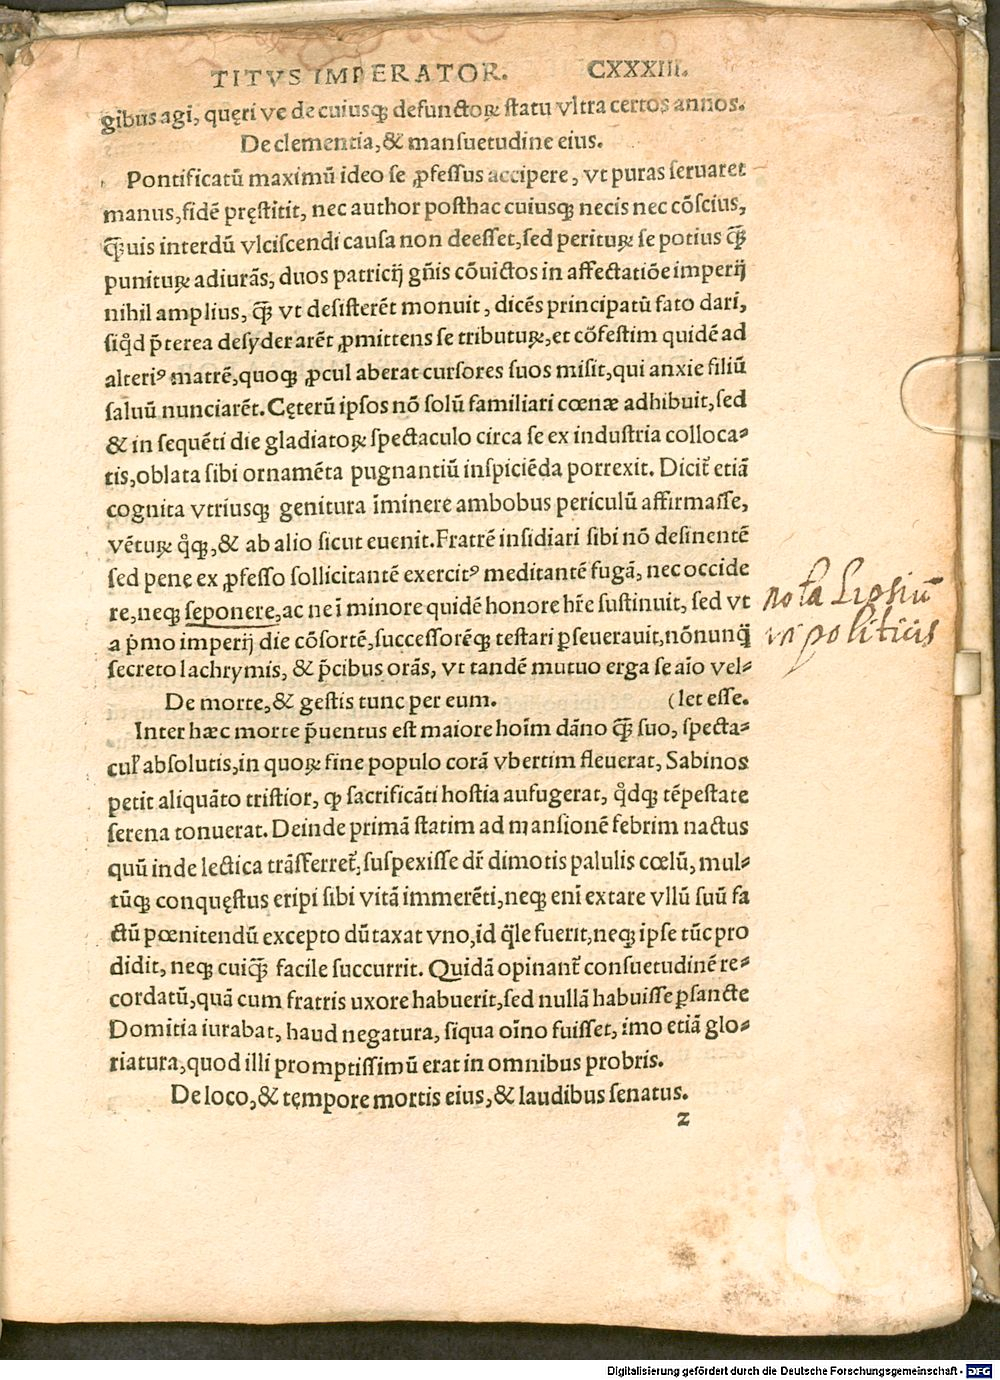 TITVS IMPERATOR. CXXXIII.
gibus agi, quęri ve de cuiusqꝫ defunctoꝝ ſtatu vltra certos annos.
De clementia, & manſuetudine eius.
Pontificatũ maximũ ideo ſe ꝓfeſſus accipere, vt puras ſeruaret
manus, fidẽ pręſtitit, nec author poſthac cuiusqꝫ necis nec cõſcius,
q̃ꝫuis interdũ vlciſcendi cauſa non deeſſet, ſed perituꝝ ſe potius q̃ꝫ
punituꝝ adiurãs, duos patricij gñis cõuictos in affectatiõe imperij
nihil amplius, q̃ꝫ vt deſiſterẽt monuit, dicẽs principatũ fato dari,
ſiq̊d p̃terea deſyderarẽt ꝓmittens ſe tributuꝝ, et cõfeſtim quidẽ ad
alteriꝰ matrẽ, quoqꝫ ꝓcul aberat curſores ſuos miſit, qui anxie filiũ
ſaluũ nunciarẽt. Cęterũ ipſos nõ ſolũ familiari cœnæ adhibuit, ſed
& in ſequẽti die gladiatoꝝ ſpectaculo circa ſe ex induſtria colloca⸗
tis, oblata ſibi ornamẽta pugnantiũ inſpiciẽda porrexit. Dicit̃ etiã
cognita vtriusqꝫ genitura ĩminere ambobus periculũ affirmaſſe,
vẽtuꝝ q̊qꝫ, & ab alio ſicut euenit. Fratrẽ inſidiari ſibi nõ deſinentẽ
ſed pene ex ꝓfeſſo ſollicitantẽ exercitꝰ meditantẽ fugã, nec occide
re, neqꝫ ſeponere, ac ne ĩ minore quidẽ honore hr̃e ſuſtinuit, ſed vt
a p̃mo imperij die cõſortẽ, ſucceſſorẽqꝫ teſtari ꝑſeuerauit, nõnunq̃ꝫ
ſecreto lachrymis, & p̃cibus orãs, vt tandẽ mutuo erga ſe aĩo vel⸗
De morte, & geſtis tunc per eum. (let eſſe.
Inter hæc morte p̃uentus eſt maiore hoĩm dãno q̃ꝫ ſuo, ſpecta⸗
cul̃ abſolutis, in quoꝝ fine populo corã vbertim fleuerat, Sabinos
petit aliquãto triſtior, ꝙ ſacrificãti hoſtia aufugerat, q̊dqꝫ tẽpeſtate
ſerena tonuerat. Deinde primã ſtatim ad manſionẽ febrim nactus
quũ inde lectica trãſferret̃, ſuſpexiſſe dr̃ dimotis palulis cœlũ, mul⸗
tũqꝫ conquęſtus eripi ſibi vitã immerẽti, neqꝫ enĩ extare vllũ ſuũ fa
ctũ pœnitendũ excepto dũtaxat vno, id q̃le fuerit, neqꝫ ipſe tũc pro
didit, neqꝫ cuiq̃ꝫ facile ſuccurrit. Quidã opinant̃ conſuetudinẽ re⸗
cordatũ, quã cum fratris vxore habuerit, ſed nullã habuiſſe ꝑſancte
Domitia iurabat, haud negatura, ſiqua oĩno fuiſſet, imo etiã glo⸗
riatura, quod illi promptiſſimũ erat in omnibus probris.
De loco, & tęmpore mortis eius, & laudibus ſenatus.
z
nota Lipsiũ
in politicis
Digitalisierung gefördert durch die Deutsche Forschungsgemeinschaft - DFG